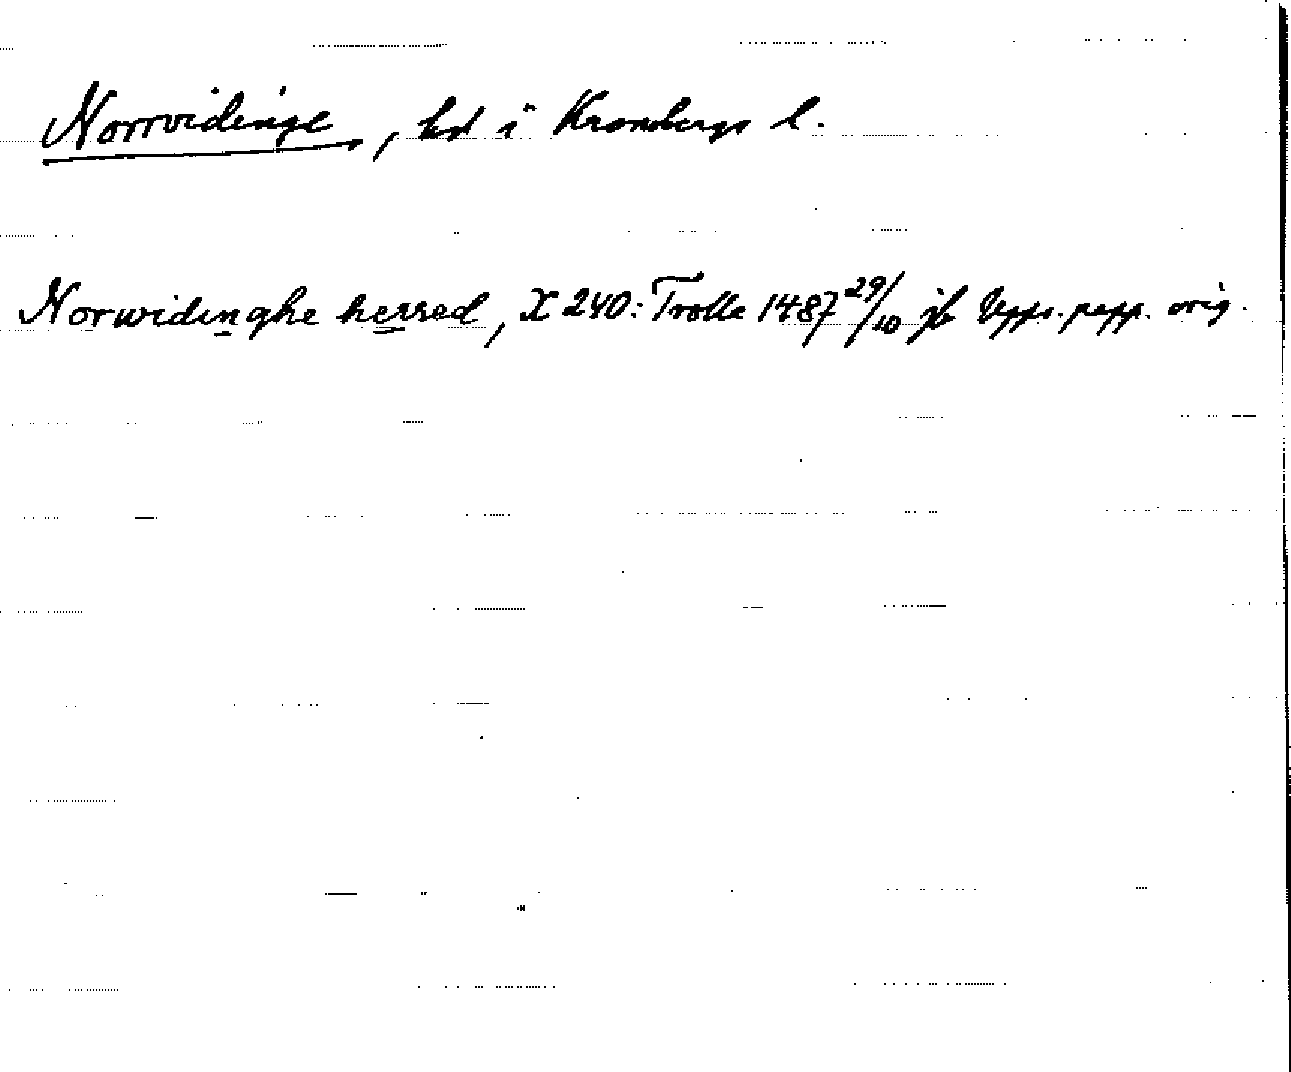 Norrvidinge, hd i Kronobergs l.
Norwidinghe herred, X 240: Trolle 1487 29/10 jb Upps. papp. orig.